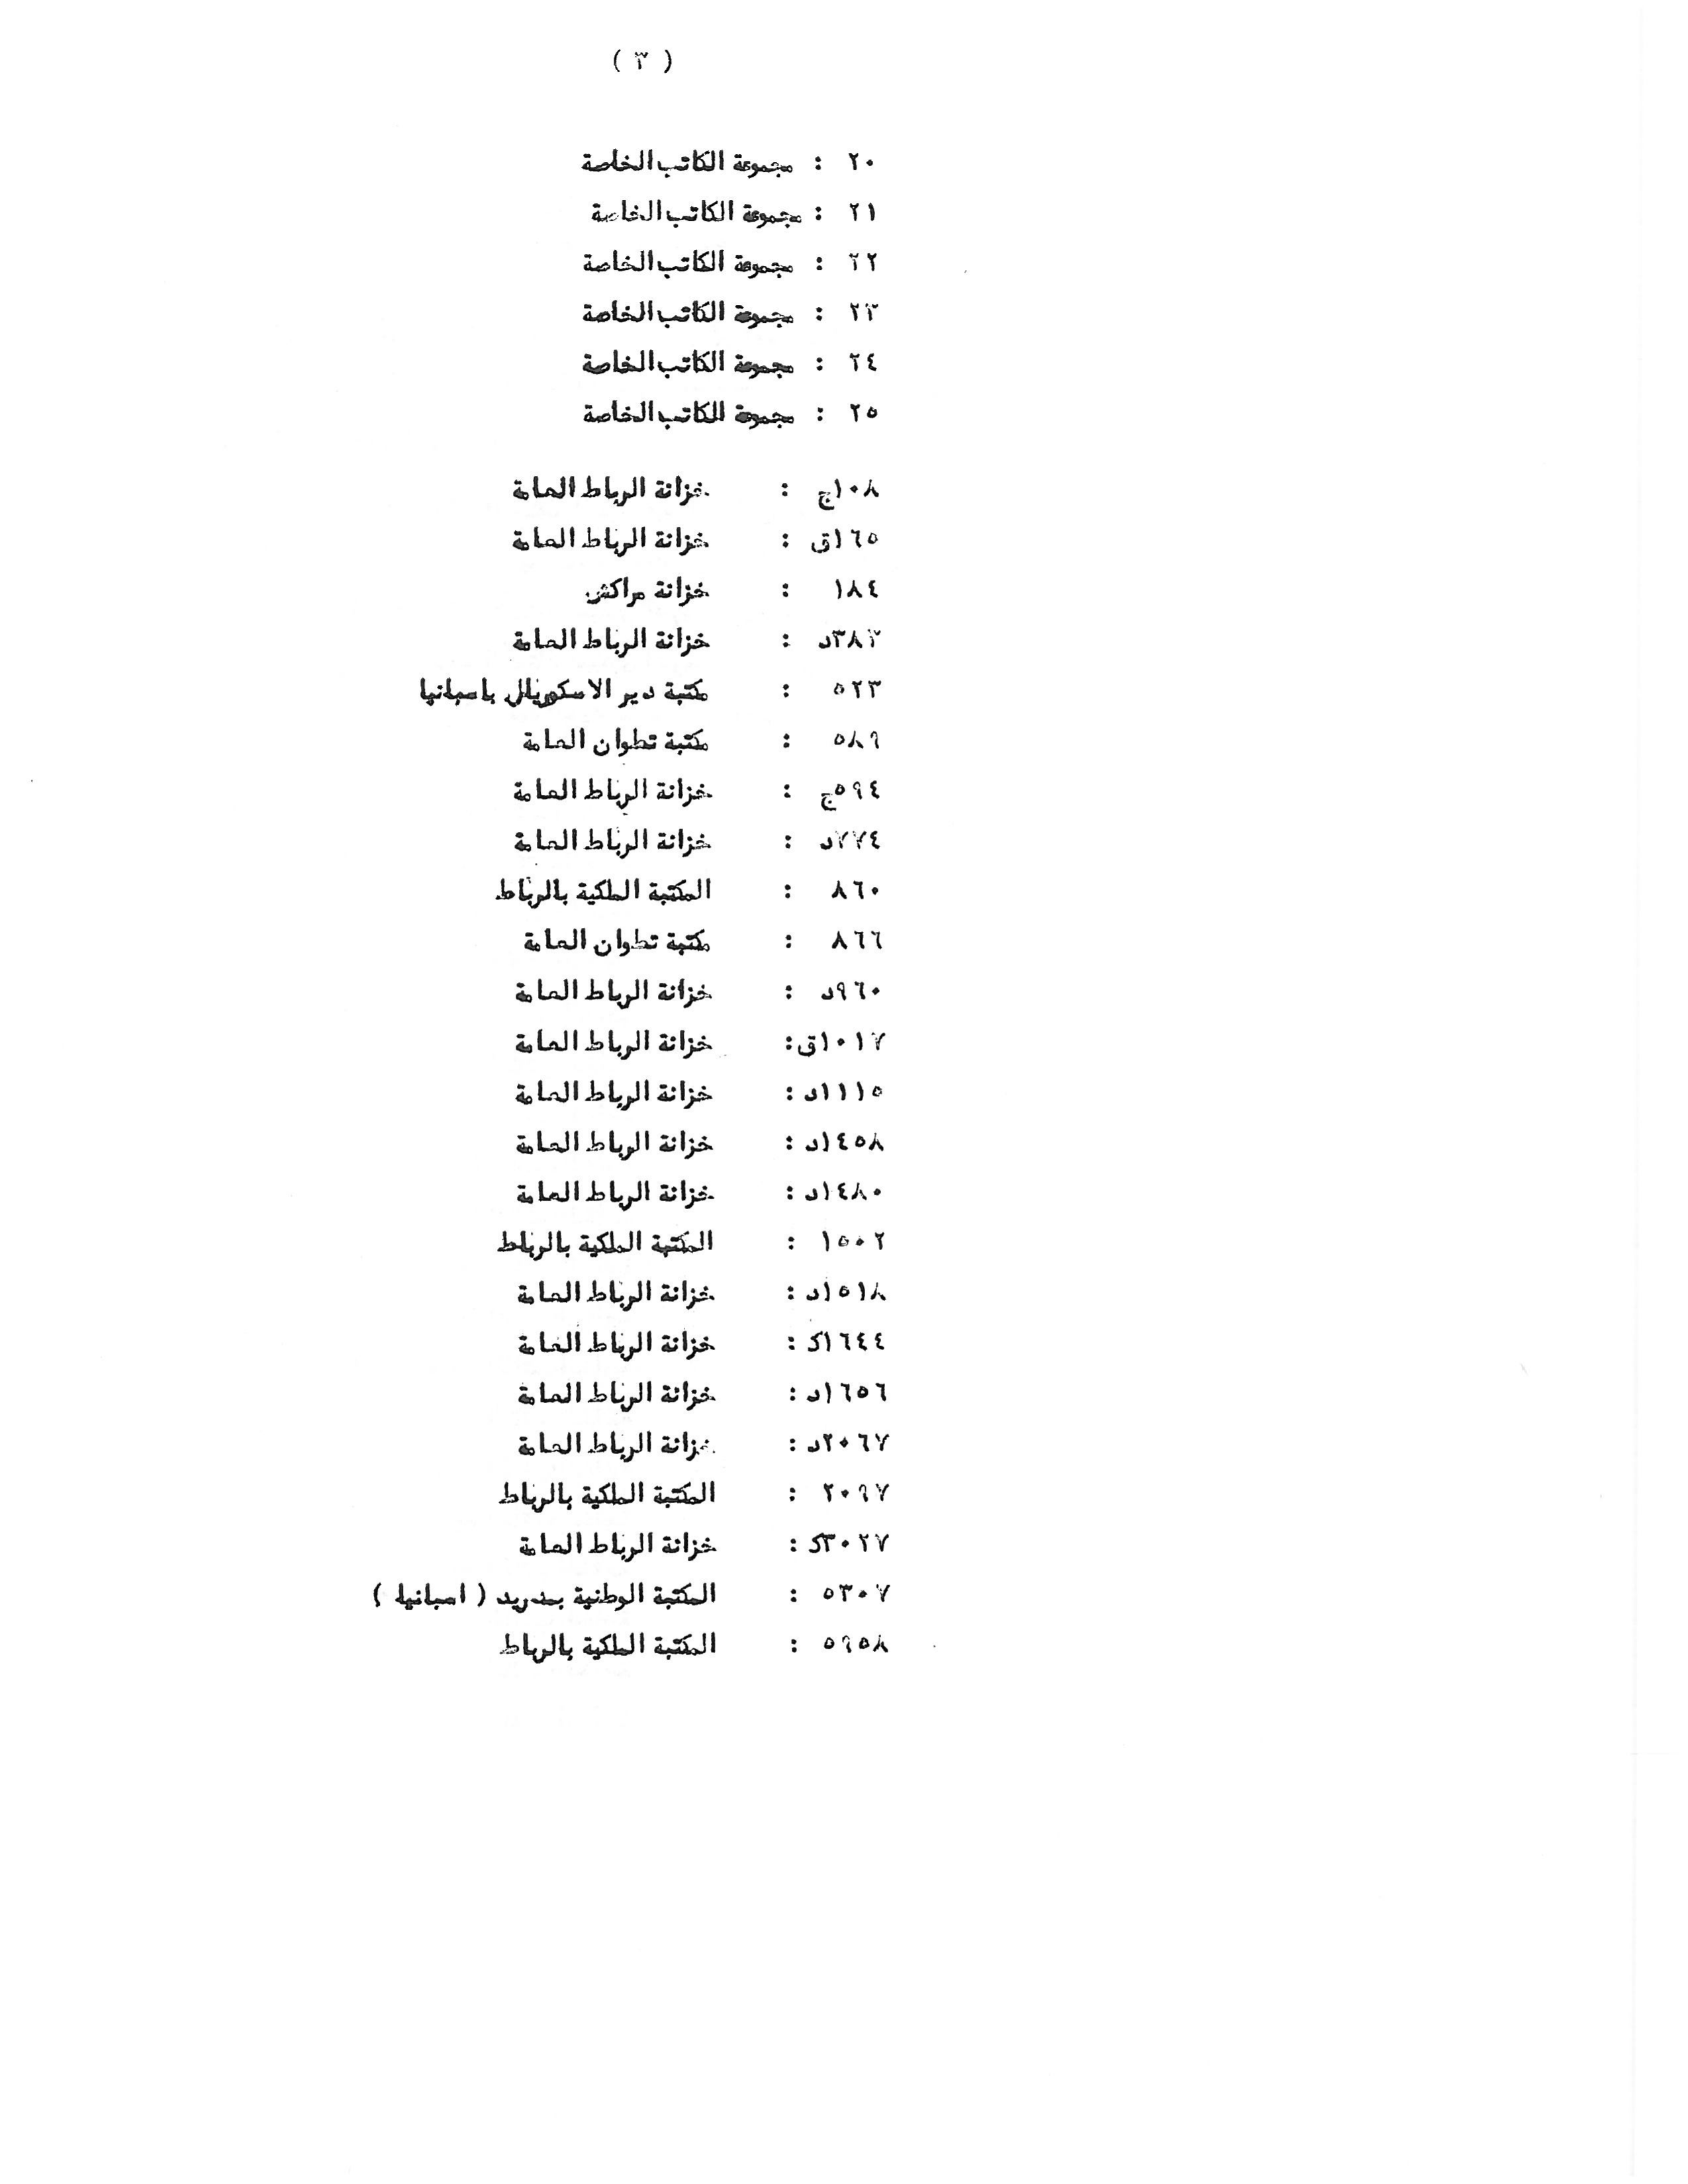 ( ٣ )
٢٠ : مجموعة الكاتب الخاصة
٢١ : مجموعة الكاتب الخاصة
٢٢ : مجموعة الكاتب الخاصة
٢٣ : مجموعة الكاتب الخاصة
٢٤ : مجموعة الكاتب الخاصة
٢٥ : مجموعة الكاتب الخاصة
١٠٨ج : خزانة الرباط العامة
١٦٥ق : خزانة الرباط العامة
١٨٤ : خزانة مراكش
٣٨٣د : خزانة الرباط العامة
٥٢٣ : مكتبة دير الاسكوريال باسبانيا
٥٨٩ : مكتبة تطوان العامة
٥٩٤ج : خزانة الرباط العامة
٧٧٤د : خزانة الرباط العامة
٨٦٠ : المكتبة الملكية بالرباط
٨٦٦ : مكتبة تطوان العامة
٩٦٠د : خزانة الرباط العامة
١٠١٧ق: خزانة الرباط العامة
١١١٥د : خزانة الرباط العامة
١٤٥٨د : خزانة الرباط العامة
١٤٨٠د : خزانة الرباط العامة
١٥٠٢ : المكتبة الملكية بالرباط
١٥١٨د : خزانة الرباط العامة
١٦٤٤ك : خزانة الرباط العامة
١٦٥٦د : خزانة الرباط العامة
٢٠٦٧د : خزانة الرباط العامة
٢٠٩٧ : المكتبة الملكية بالرباط
٣٠٢٧ك : خزانة الرباط العامة
٥٣٠٧ : المكتبة الوطنية بمدريد ( اسبانيا )
٥٩٥٨ : المكتبة الملكية بالرباط